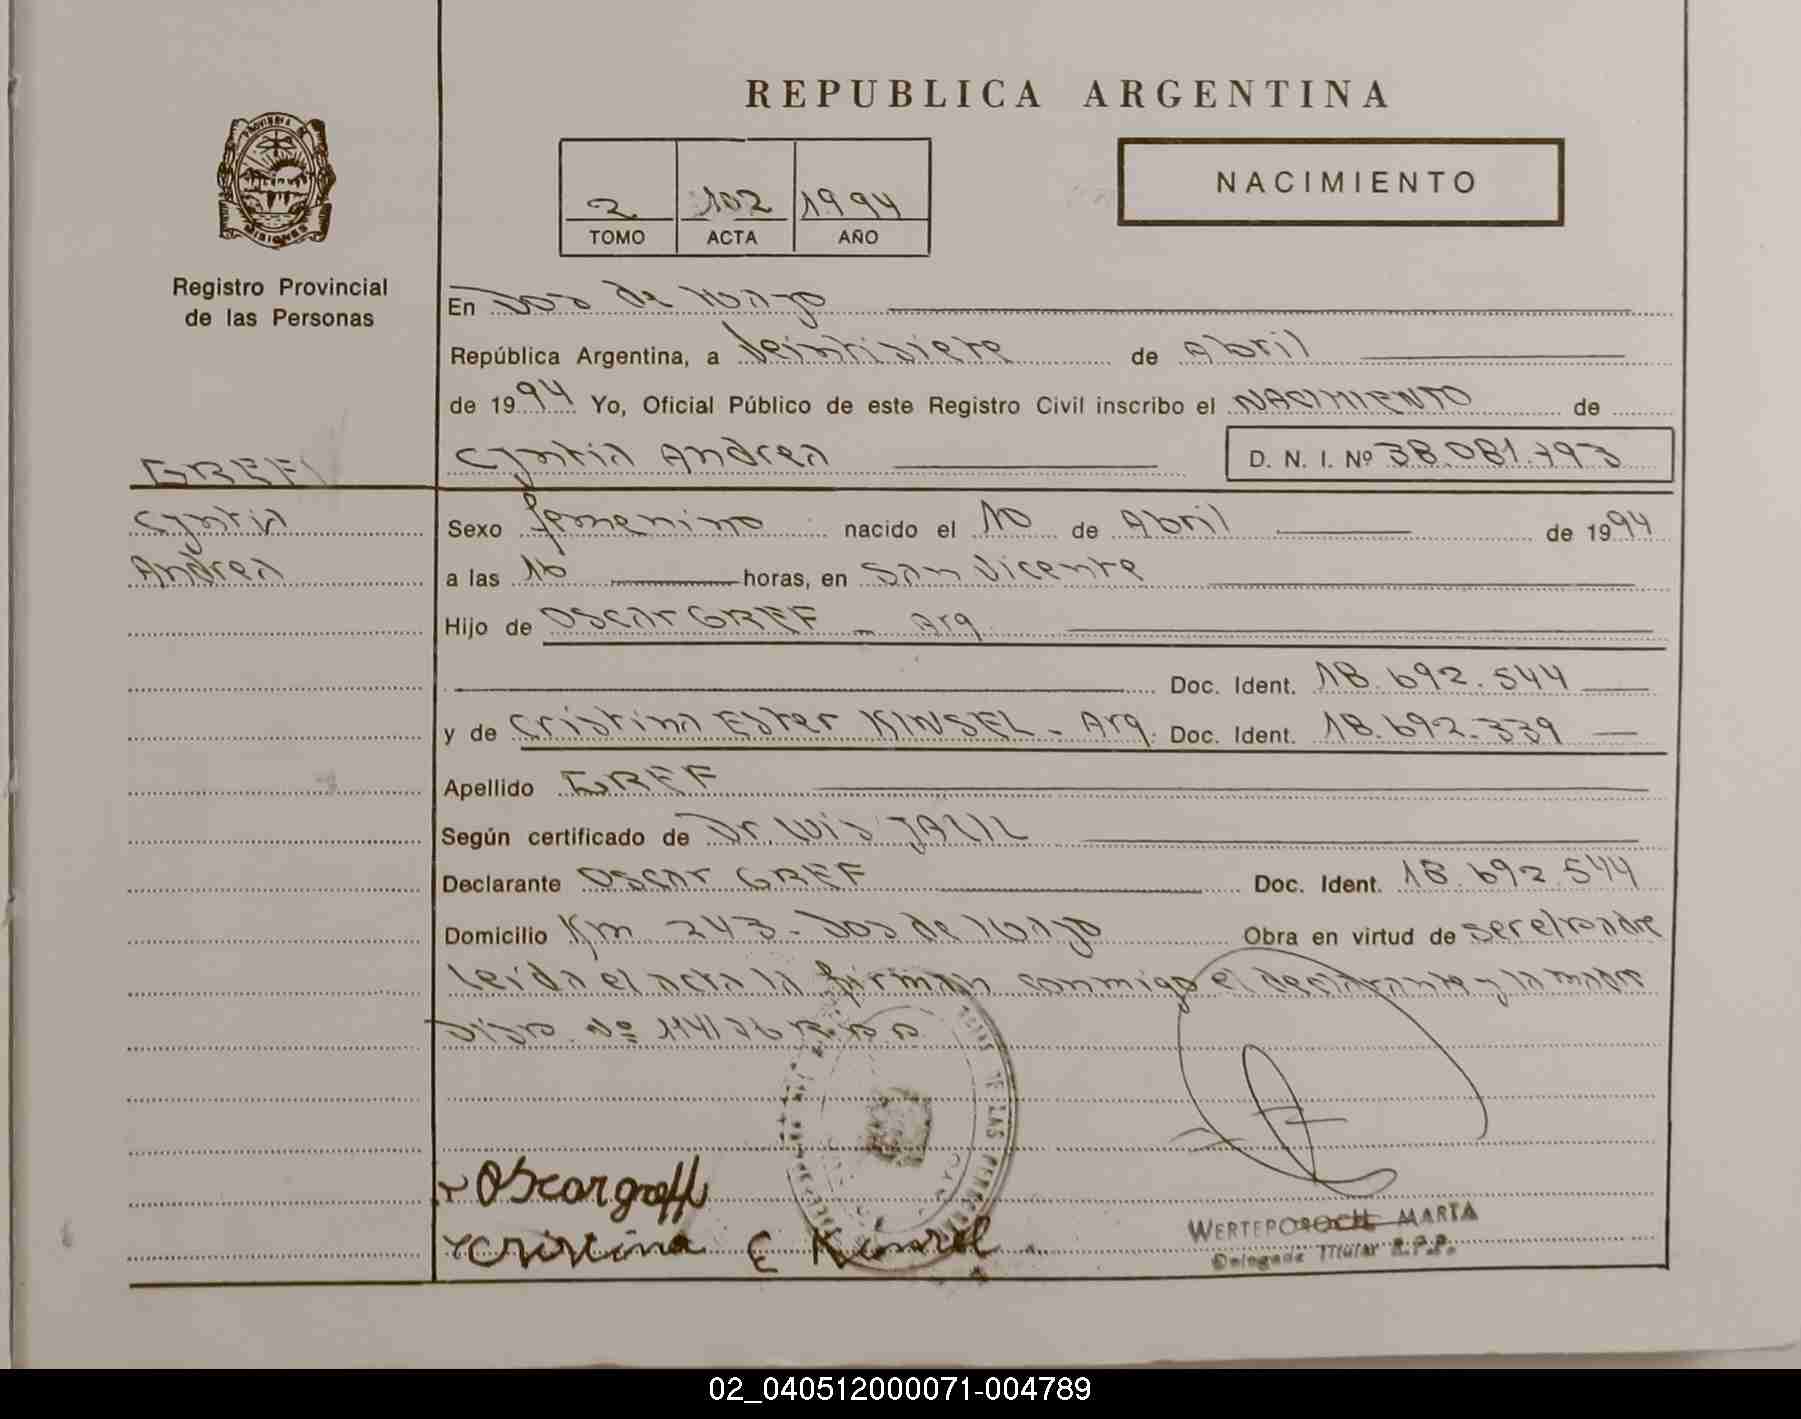 REPUBLICA ARGENTINA
PROVINCIA DE
MISIONES
Registro Provincial
de las Personas
2 102 1994
TOMO ACTA AÑO
NACIMIENTO
En Dos de Mayo
República Argentina, a Veintisiete de Abril
de 1994 Yo, Oficial Público de este Registro Civil inscribo el NACIMIENTO de
GREF
Cyntia Andrea D. N. I. Nº 38.081.793
Cyntia
Andrea
Sexo femenino nacido el 10 de Abril de 1994
a las 16 horas, en San Vicente
Hijo de Oscar GREF - Arg
Doc. Ident. 18.692.544
y de Cristina Ester KINSEL - Arg. Doc. Ident. 18.692.339
Apellido GREF
Según certificado de Dr. Luis JALIL
Declarante Oscar GREF Doc. Ident. 18.692.544
Domicilio Km 243 - Dos de Mayo Obra en virtud de ser el padre
Leída el acta la firman conmigo el declarante y la madre
Disp. Nº 114/76 R.P.P.
Oscar greff
Cristina E Kinsel
DE LAS PERSONAS
MARTA
Delegada Titular R.P.P.
02_040512000071-004789